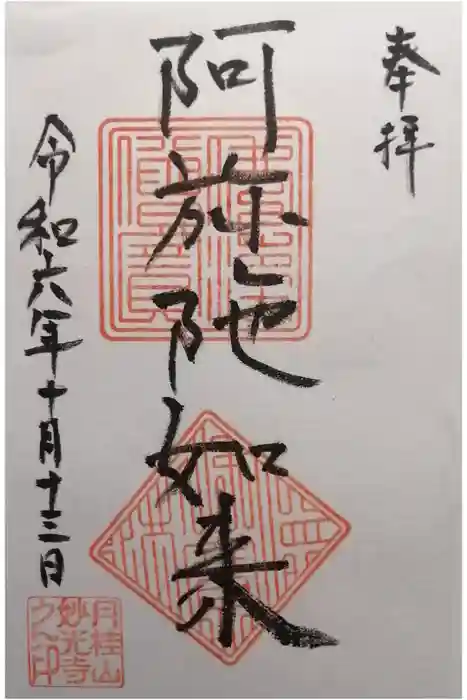 奉拝
阿弥陀如来
令和六年十月十三日
月桂山
妙光寺